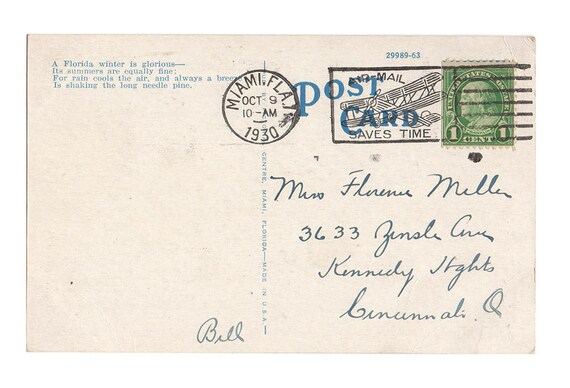 A Florida winter is glorious—
Its summers are equally fine:
For rain cools the air, and always a breeze
Is shaking the long needle pine.
29989-63
MIAMI, FLA.
OCT 9
10-AM
1930
AIR-MAIL
SAVES TIME
POST
CARD
1 CENT 1
CENTRE, MIAMI, FLORIDA—MADE IN U.S.A.—
Miss Florence Meller
3633 Zinsle Ave
Kennedy Hghts
Cincinnati. O
Bill